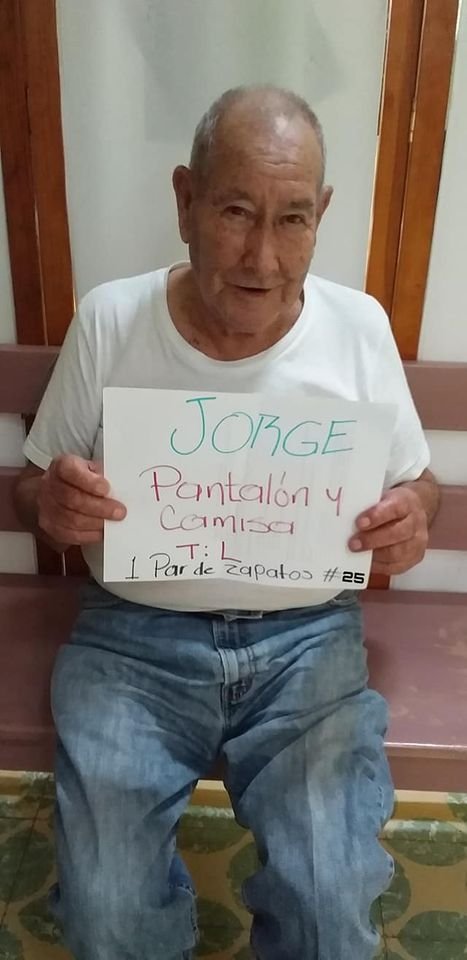 JORGE
Pantalón y
Camisa
T: L
1 Par de zapatos #25